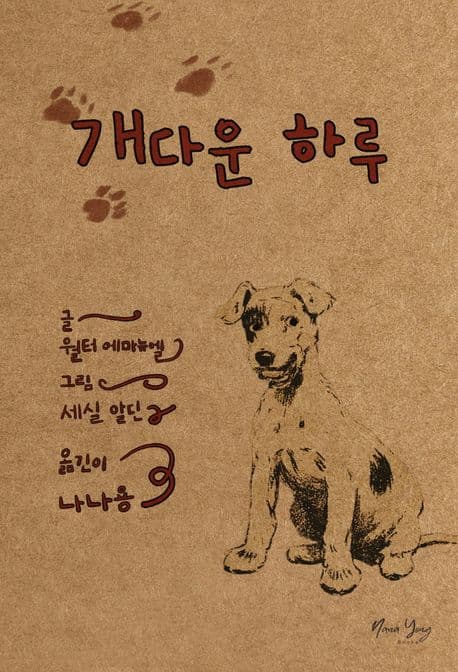 개다운 하루
글
월터 에마뉴엘
그림
세실 알딘
옮긴이
나나용
Nana Yong
Books